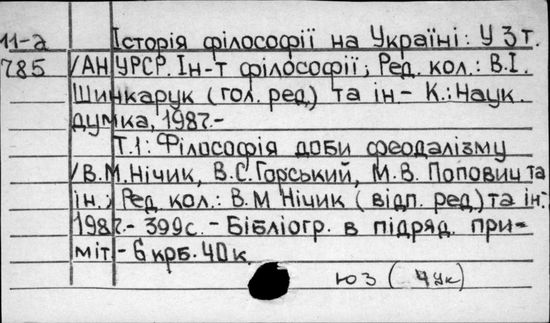 11-а Історія філософії на Україні: У 3 т.
785 /АН УРСР. Ін-т філософії; Ред. кол.: В.І.
Шинкарук (гол. ред) та ін- К.: Наук.
думка, 1987.-
Т.1: Філософія доби феодалізму
/В.М.Нічик, В.С.Горський, М.В. Попович та
ін.; Ред. кол.: В.М Нічик (відп. ред.) та ін.
1987.- 399с. - Бібліогр. в підряд. при=
міт.- 6 крб. 40 к.
ЮЗ ( 4 ук)